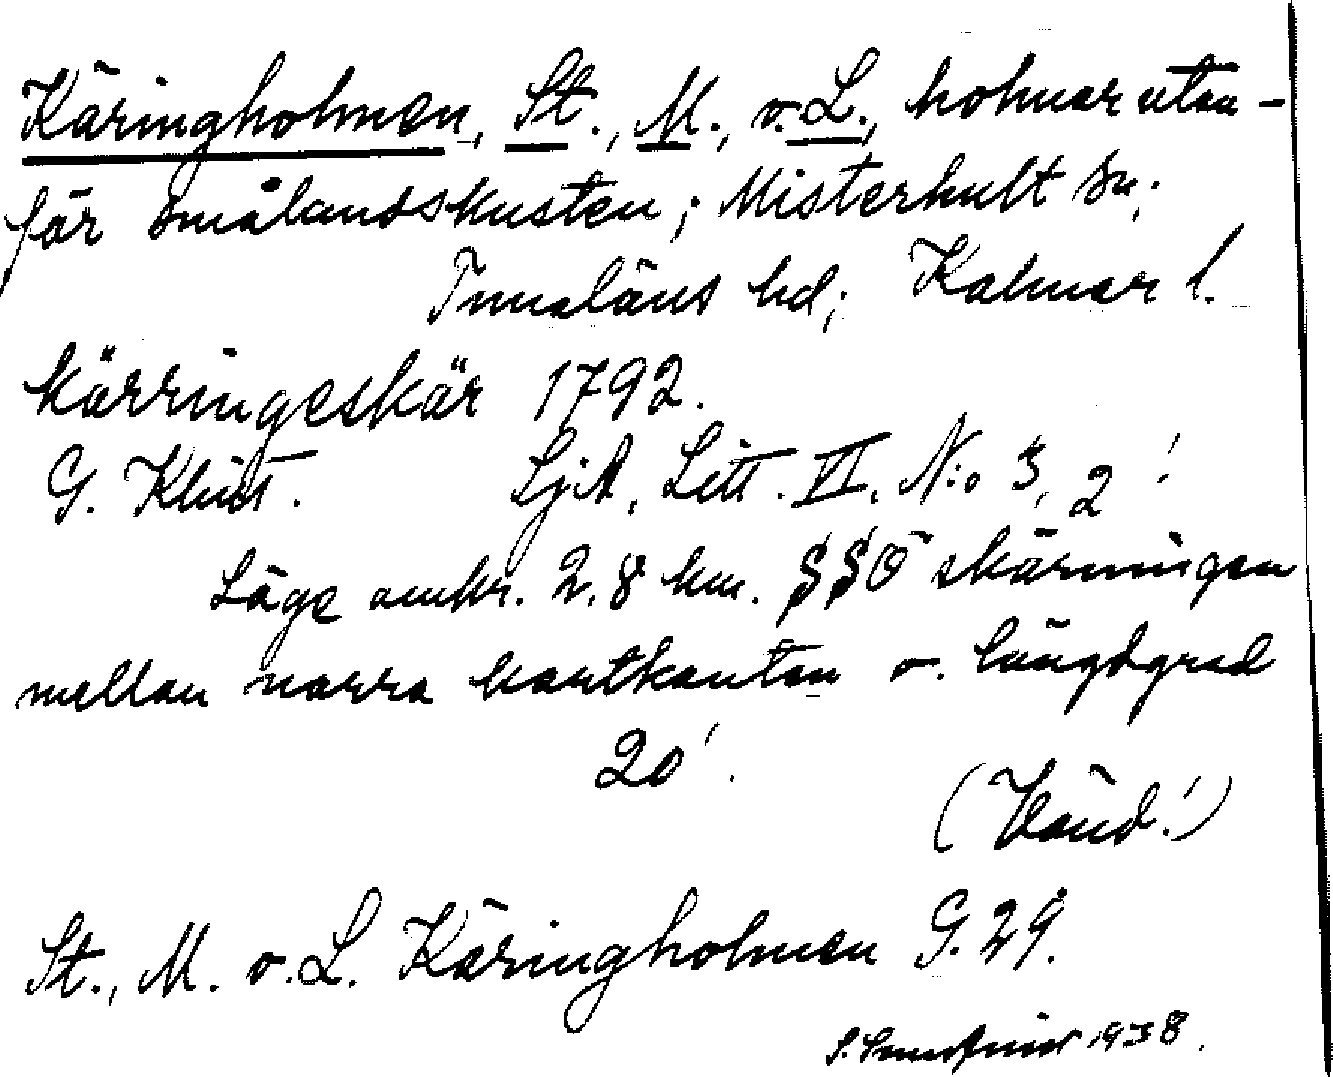 Käringholmen, St., M., o. L., holmar utan-
för Smålandskusten; Misterhult sn;
Tunaläns hd; Kalmar l.
Kärringeskär 1792.
G. Klint. SjA, Litt. VI, N:o 3, 2!
Läge omkr. 2,8 km. SSÖ skärningen
mellan norra kartkanten o. längdgrad
20'.
(Vänd!)
St., M. o. L. Käringholmen G. 29.
1938.